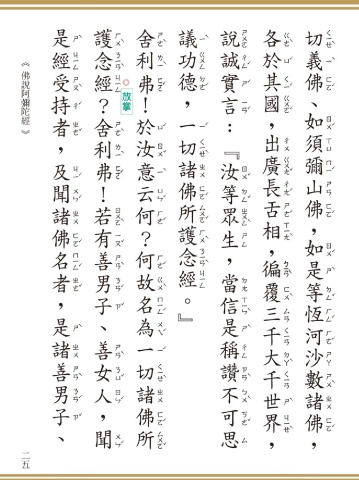 切義佛、如須彌山佛，如是等恆河沙數諸佛，
各於其國，出廣長舌相，徧覆三千大千世界，
說誠實言：『汝等眾生，當信是稱讚不可思
議功德，一切諸佛所護念經。』
放掌
舍利弗！於汝意云何？何故名為一切諸佛所
護念經？舍利弗！若有善男子、善女人，聞
是經受持者，及聞諸佛名者，是諸善男子、
《佛說阿彌陀經》
二五